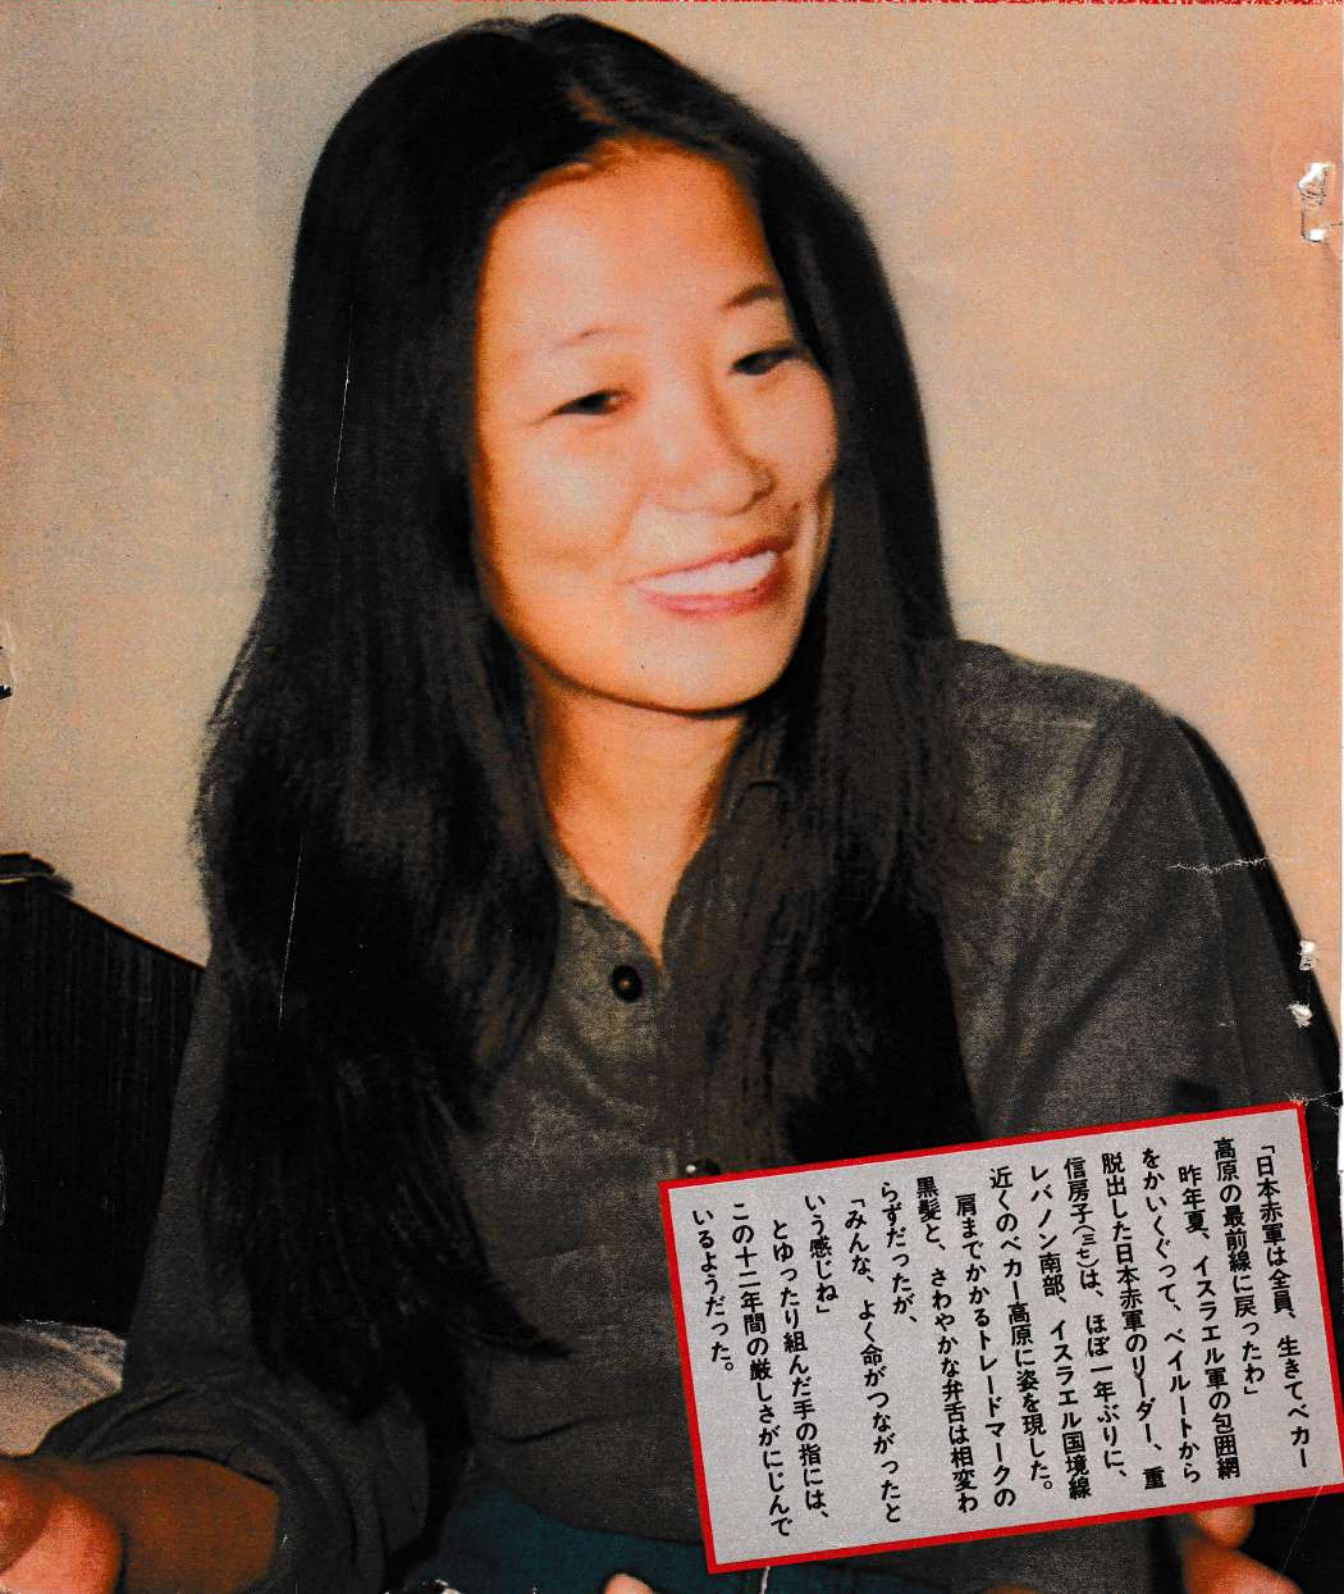 「日本赤軍は全員、生きてベカー
高原の最前線に戻ったわ」
昨年夏、イスラエル軍の包囲網
をかいくぐって、ベイルートから
脱出した日本赤軍のリーダー、重
信房子(三七)は、ほぼ一年ぶりに、
レバノン南部、イスラエル国境線
近くのベカー高原に姿を現した。
肩までかかるトレードマークの
黒髪と、さわやかな弁舌は相変わ
らずだったが、
「みんな、よく命がつながったと
いう感じね」
とゆったり組んだ手の指には、
この十二年間の厳しさがにじんで
いるようだった。